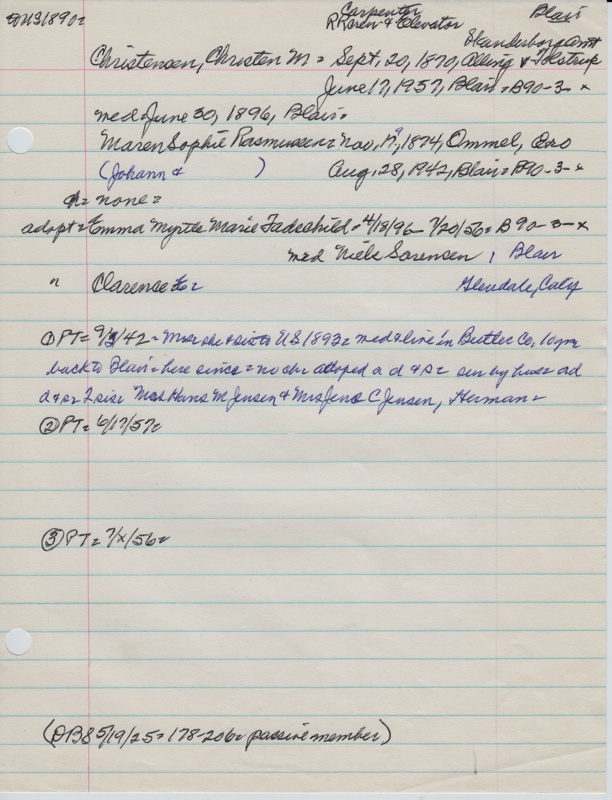 US 1890= Carpenter Blair
RR oren & Elevator
Skanderborg amt
Christensen, Christen M = Sept. 20, 1870, Alling & Tolstrup
June 17, 1957, Blair = B90-3-x
med = June 30, 1896, Blair =
Maren Sophie Rasmussen = Nov. 17, 9, 1874, Ommel, Æro
(Johann & ) Aug. 28, 1942, Blair = B90-3-x
ch = none =
adopt = Emma Myrtle Marie = 4/18/96 - 7/20/56 = B90-3-x
med Niels Sorensen, Blair
" Clarence = Glendale, Calif
① PT = 9/3/42 = Mrs she & sis to US 1893 = med & live in Butler Co, 10 yrs
back to Blair = here since = no chr adopted a d & s = sur by hus & ad
d & s = 2 sis = Mrs Hans M Jensen & Mrs Jens C Jensen, Herman =
② PT = 6/17/57 =
③ PT = 7/x/56 =
(DBS 5/19/25 = 178-206 = passive member)